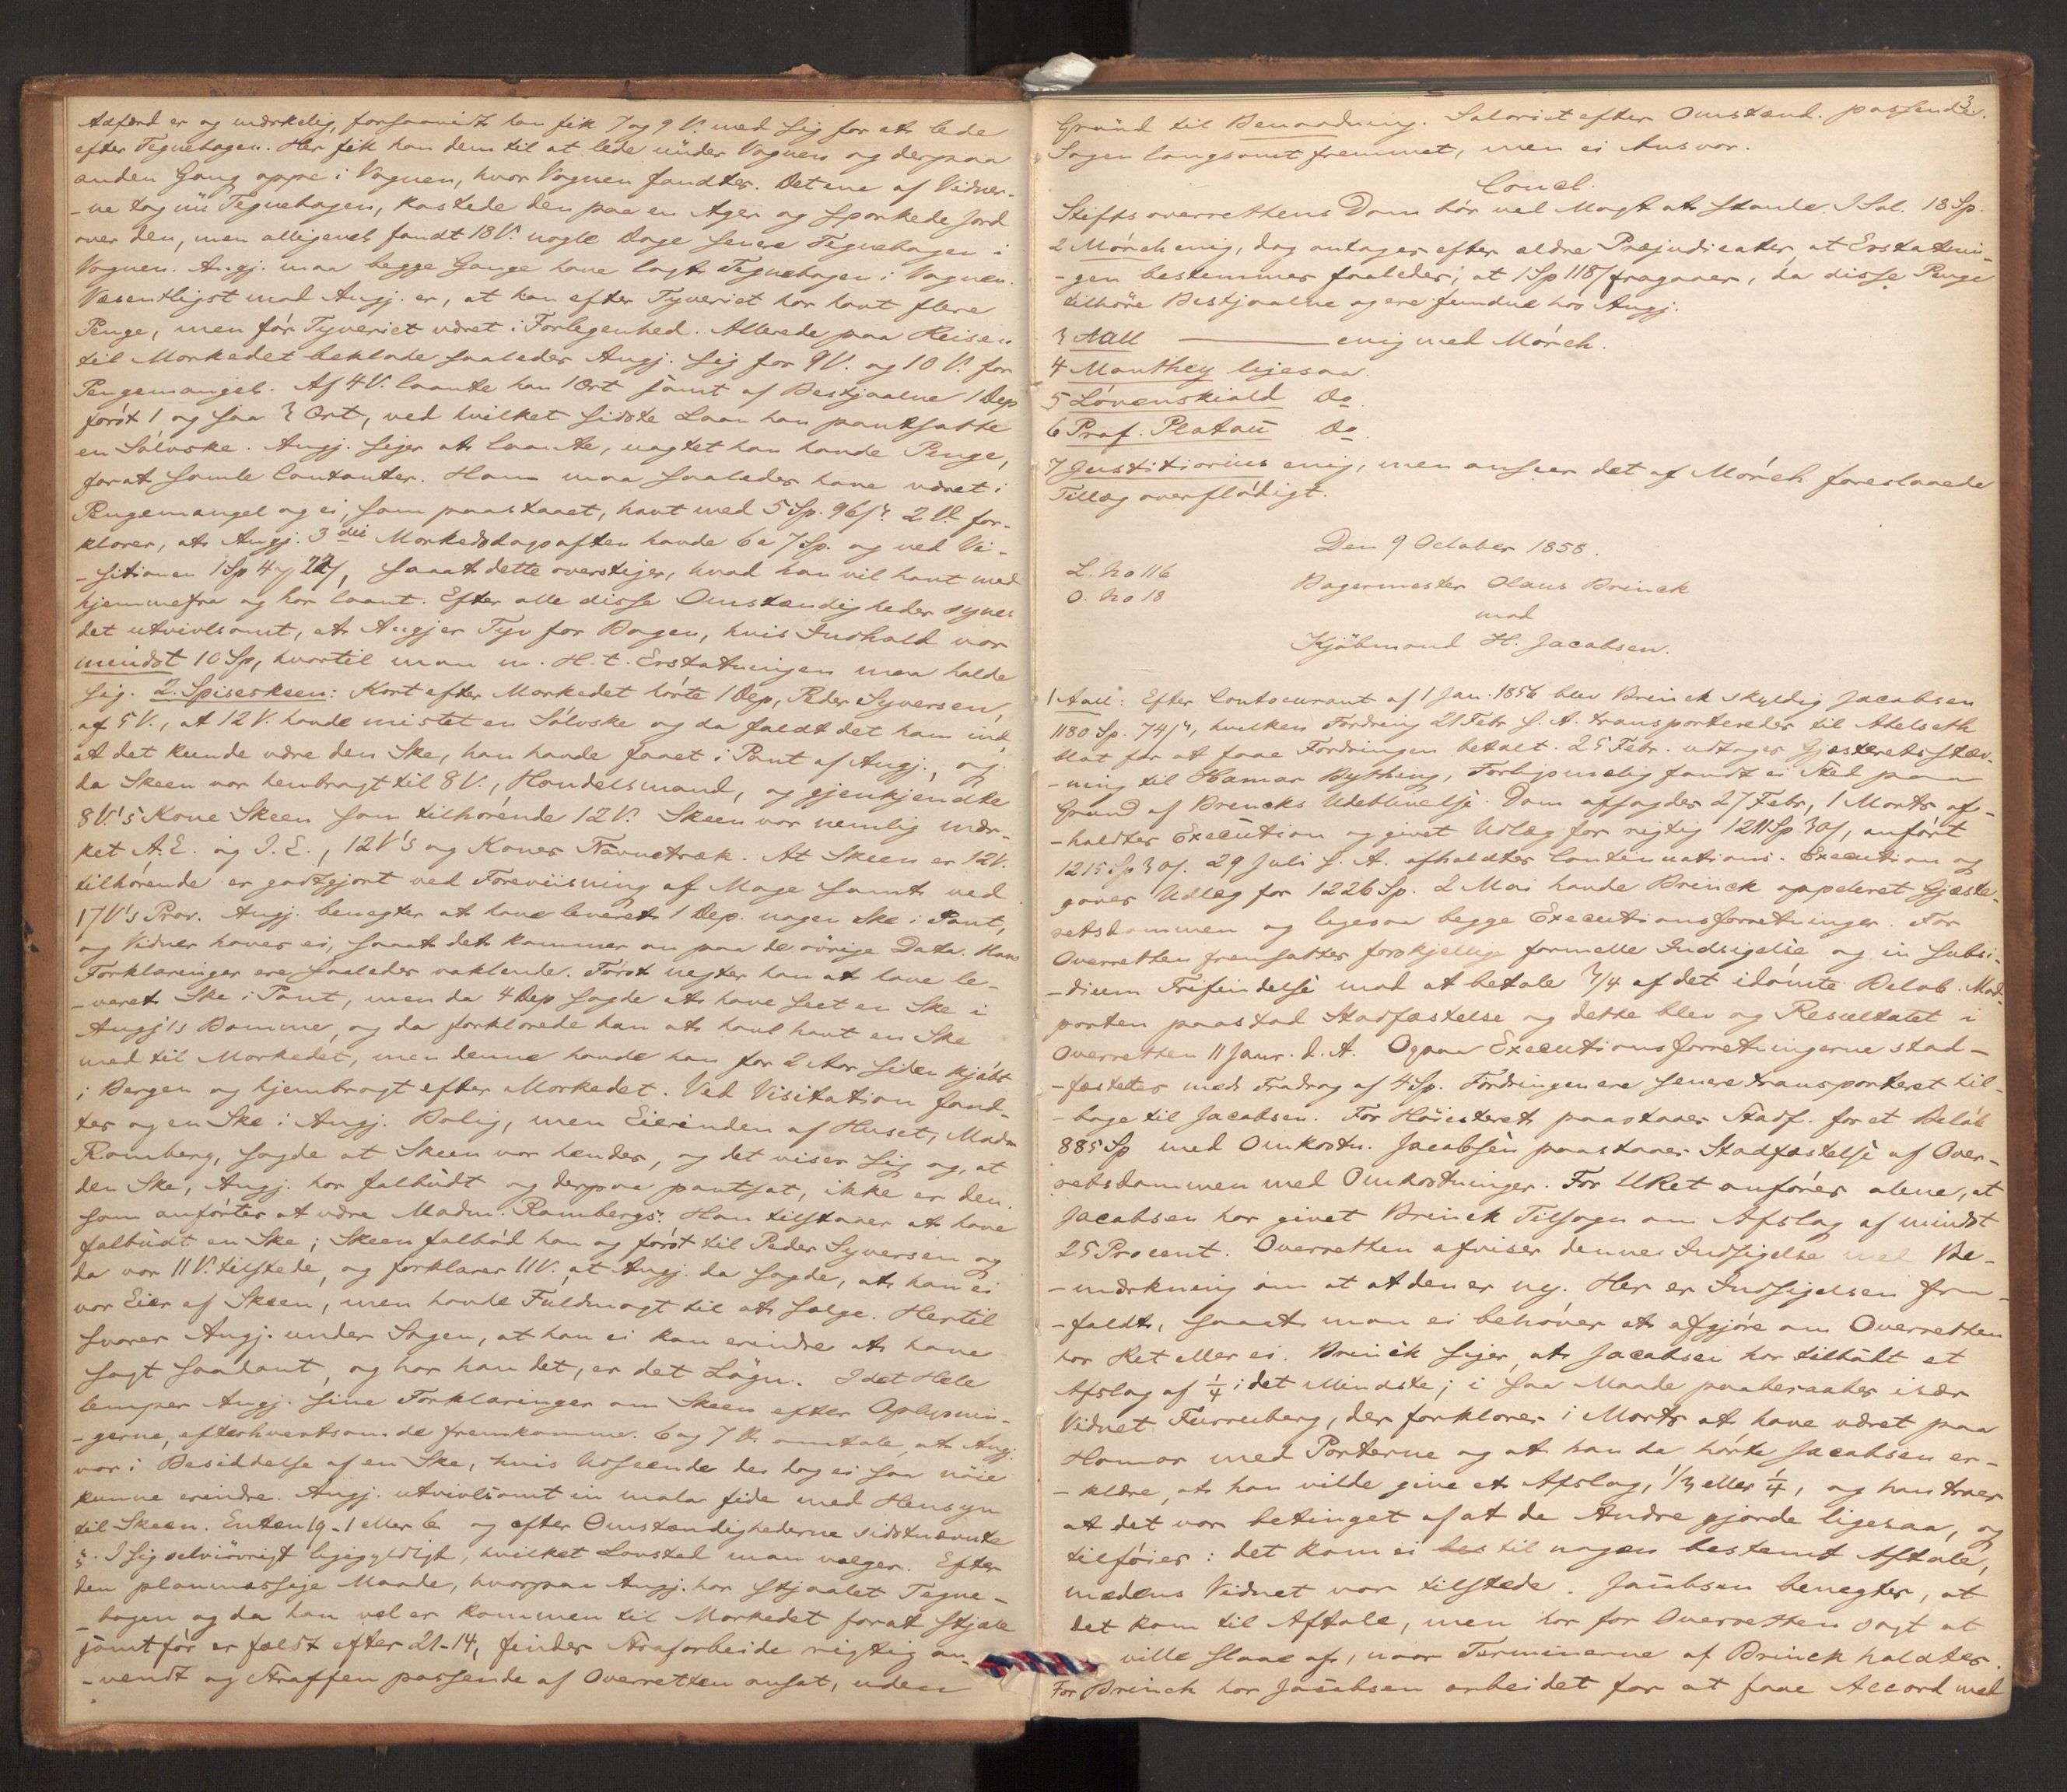 Adfærd er og mærkelig, forsaavidt han fik 7 og 9 V. med sig for at lede
efter Tegnebogen. Her fik han dem til at lede ünder Vognen og derpaa
anden Gang oppe i Vognen, hvor Vognen fandtes. Det ene af Vidner-
-ne tog nü Tegnebogen, kastede den paa en Ager og sparkede Jord
over den, men alligevel fandt 18 V. nogle Dage senere Tegnebogen i
Vognen. Angj. maa begge Gange have lagt Tegnebogen i Vognen.
Væsentligst mod Angj. er, at han efter Tyveriet har havt flere
Penge, men før Tyveriet været i Forlegenhed. Allerede paa Reisen
til Markedet beklode saaledes Angj. sig for 9 V. og 10 V. for
Pengemangel. Af 4 V. laante han 1 Ort samt af Bestjaalne 1 Dep
først 1 og saa 3 Ort, ved hvilket sidste Laan han pantsatte
en Sølvske. Angj. siger at laante, uagtet han havde Penge,
for at samle Contanter. Ham maa saaledes have været i
Pengemangel og ei, som paastaaet, havt med 5 Sp. 96 s. 2 V. for-
klarer, at Angj. 3die Markedsdagsaften havde 6 a 7 Sp. og ved Vi-
-sitionen 1 Sp 4 22 s, saaat dette overstiger, hvad han vil havt med
hjemmefra og har laant. Efter alle disse Omstændigheder synes
det utvivlsomt, at Angj er Tyv for Bogen, hvis Indhold var
mindst 10 Sp, hvortil man m. H. t. Erstatningen maa holde
sig. 2. Spiseskeen: Kort efter Markedet hørte 1 Dep, Peder Syversen,
af 5 V., at 12 V. havde mistet en Sølvske og da faldt det ham ind
at det kunde være den Ske, han havde faaet i Pant af Angj., og
da Skeen var henbragt til 8 V., Handelsmand, og gjenkjendte
8 V.'s Kone Skeen som tilhørende 12 V. Skeen var nemlig mær-
ket A. E. og I. E., 12 V's og Kones Navnetræk. At Skeen er 12 V.
tilhørende er godtgjort ved Foreviisning af Mage samt ved
17 V's Prov. Angj. benegter at have leveret 1 Dep. nogen Ske i Pant,
og Vidner haves ei, saaat det kommer an paa de øvrige Data. Hans
Forklaringer ere saaledes vaklende. Først negter han at have le-
-veret Ske i Pant, men da 4 Dep sagde at have seet en Ske i
Angj's Bomme, og da forklarede han at have havt en Ske
med til Markedet, men denne havde han for 2 Aar siden kjøbt
i Bergen og hjembragt efter Markedet. Ved Visitation fand-
tes og en Ske i Angj. Bolig, men Eierinden af Huset, Madm
Ramberg, sagde at Skeen var hendes, og det viser sig og, at
den Ske, Angj. har falbüdt og derpaa pantsat, ikke er den,
som anførtes at være Madm. Rambergs. Han tilstaaer at have
falbüdt en Ske; Skeen falbød han og først til Peder Syversen og
da var 11 V. tilstede, og forklarer 11 V. at Angj. da sagde, at han ei
var Eier af Skeen, men havde Fuldmagt til at sælge. Hertil
svarer Angj. under Sagen, at han ei kan erindre at have
sagt saadant, og har han det, er det Løgn. I det Hele
lemper Angj. sine Forklaringer om Skeen efter Oplysnin-
-gerne, efterhvertsom de fremkomme. 6 og 7 V. omtale, at Angj.
var i Besiddelse af en Ske, hvis Udseende de dog ei saa nøie
kunne erindre. Angj. utvivlsomt in mala fide med Hensyn
til Skeen. Enten 19-1 eller 6 og efter Omstændighederne sidstnævnte
§. I sig selv iøvrigt ligegyldigt, hvilket Lovsted man vælger. Efter
den planmæssige Maade, hvorpaa Angj. har stjaalet Tegne-
-bogen og da han vel er kommen til Markedet for at stjæle
samt før er fældt efter 21-14, findes Strafarbeide rigtig an-
-vendt og Straffen passende af Overretten ansat, uden
3.
Gründ til Benaadning. Salariet efter Omstænd. passende.
Sagen langsomt fremmet, men ei Ansvar.
Concl.
Stiftsoverrettens Dom bør ved Magt at stande. I Sal. 18 Sp.
2 Mørch enig, dog antages efter ældre Præjudicater, at Erstatni-
-gen bestemmes saaledes, at 1 Sp 118 s fragaaer, da disse Penge
tilhøre Bestjaalne og ere fundne hos Angj.
3 Aall ——— enig med Mørch.
4 Manthey ligesaa.
5 Løvenskiold Do.
6 Prof. Platoü Do.
7 Justitiarius enig, men anseer det af Mørch foreslaaede
Tillæg overflødigt.
Den 9 October 1858.
L. No 116
O. No 18
Bagermester Olaus Brinck
mod
Kjøbmand H. Jacobsen.
1 Aall: Efter Contocurant af 1 Jan. 1856 blev Brinck skyldig Jacobsen
1180 Sp. 74 s, hvilken Fordring 21 Febr s. A. transporteredes til Adelseth
blot for at faae Fordringen betalt. 25 Febr. udtages Gjæsteretsstæv-
-ning til Hamar Bything, Forligsmægling fandt ei Sted paa
Grund af Brincks Udeblivelse. Dom afsagdes 27 Febr, 1 Marts af-
-holdtes Execution og givet Udlæg for rigtig 1211 Sp 30 s, anført
1215 Sp 30 s. 29 Juli s. A. afholdtes Continuations-Execution og
gaves Udlæg for 1226 Sp. 2 Mai havde Brinck appelleret Gjæste-
retsdommen og ligesaa begge Executionsforretninger. For
Overretten fremsattes forskjellige formelle Indsigelse og in subsi-
-dium Frifindelse mod at betale 3/4 af det idømte Beløb. Mod-
parten paastod Stadfæstelse og dette blev og Resultatet i
Overretten 11 Janr. d. A. Ogsaa Executionsforretningerne stad-
-fæstedes med Fradrag af 4 Sp. Fordringen ere senere transporteret til-
-bage til Jacobsen. For Høiesteret paastaaes Stadf. for et Beløb
885 Sp med Omkostn. Jacobsen paastaaer Stadfæstelse af Over-
retsdommen med Omkostninger. For URet anføres alene, at
Jacobsen har givet Brinck Tilsagn om Afslag af mindst
25 Procent. Overretten afviser denne Indsigelse med Be-
-mærkning om at at den er ny. Her er Indsigelsen fra-
-faldt, saaat man ei behøver at afgjøre om Overretten
har Ret eller ei. Brinck siger, at Jacobsen har tilbüdt et
Afslag af 1/4 i det Mindste; i saa Maade paaberaabes især
Vidnet Furruberg, der forklarer i Marts at have været paa
Hamar med Parterne og at han da hørte Jacobsen er-
-klære, at han vilde give et Afslag, 1/3 eller 1/4, og han troer
at det var betinget af at de Andre gjorde ligesaa, og
tilføier: det kom ei bes til nogen bestemt Aftale,
medens Vidnet var tilstede. Jacobsen benegter, at
det kom til Aftale, men har for Overretten sagt at
ville slaae af, naar Terminerne af Brinck holdtes.
For Brinck har Jacobsen arbeidet for at faae Accord med